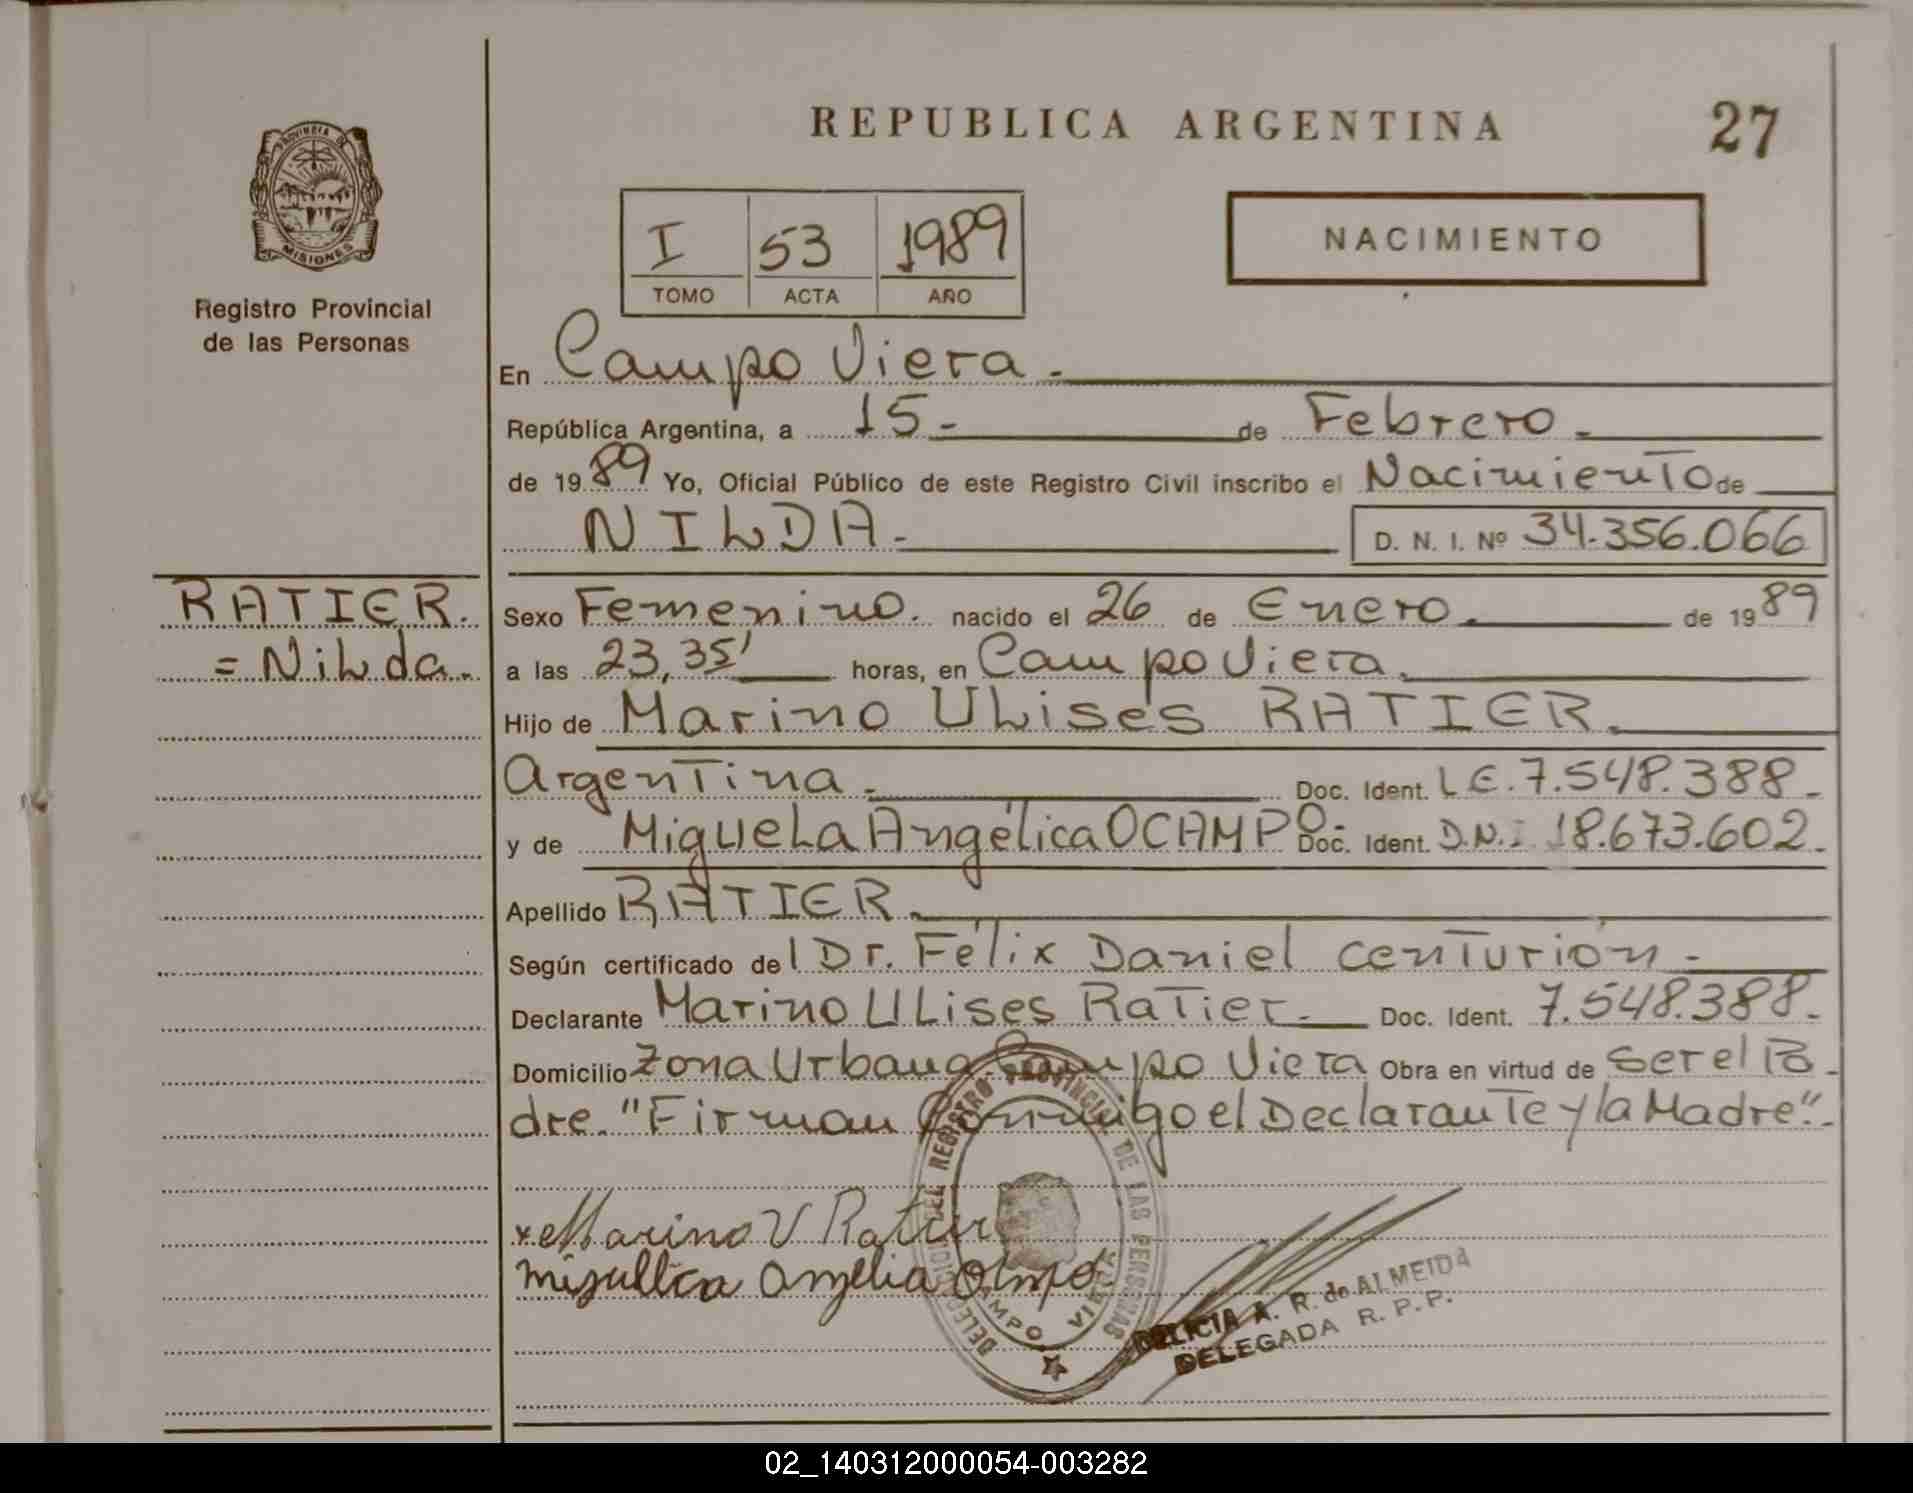 REPUBLICA ARGENTINA
27
PROVINCIA DE
MISIONES
Registro Provincial
de las Personas
I 53 1989
TOMO ACTA AÑO
NACIMIENTO
En Campo Viera.-
República Argentina, a 15- de Febrero.-
de 1989 Yo, Oficial Público de este Registro Civil inscribo el Nacimiento de
NILDA.- D. N. I. Nº 34.356.066
RATIER.
= Nilda.-
Sexo Femenino. nacido el 26 de Enero. de 1989
a las 23,35' horas, en Campo Viera.
Hijo de Marino Ulises RATIER.
Argentina.- Doc. Ident. L.E. 7.548.388-
y de Miguela Angélica OCAMPO.- Doc. Ident. D.N.I 18.673.602.
Apellido RATIER.
Según certificado del Dr. Félix Daniel Centurión.-
Declarante Marino Ulises Ratier.- Doc. Ident. 7.548.388.-
Domicilio Zona Urbana Campo Viera Obra en virtud de ser el Pa-
dre. "Firman Conmigo el Declarante y la Madre".-
Marino U Ratier
DELEGACION DEL REGISTRO PROVINCIAL DE LAS PERSONAS
CAMPO VIERA
DELICIA A. R. de ALMEIDA
DELEGADA R. P. P.
02_140312000054-003282